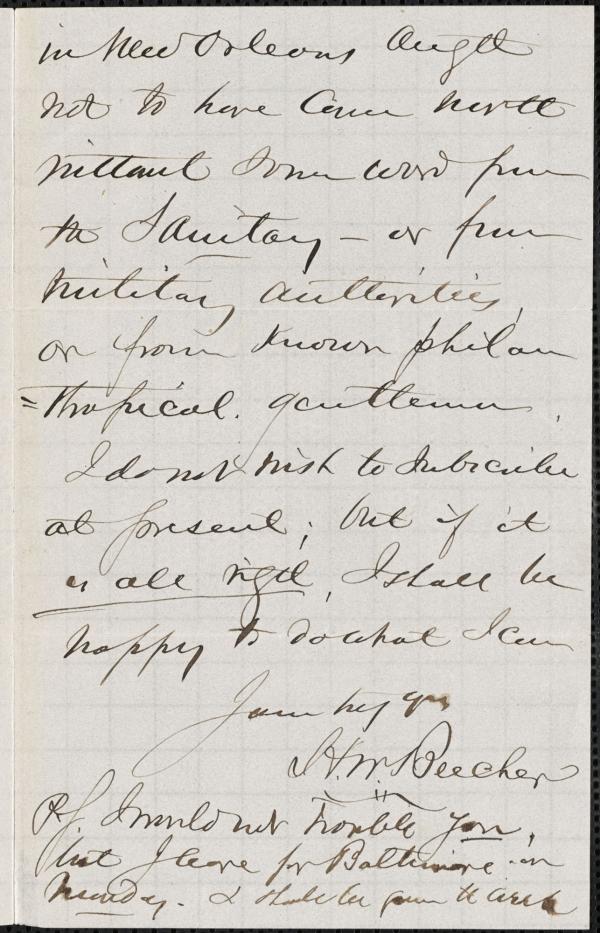 in New Orleans ought
not to have come north
without some word from
the Sanitary – or from
military authorities,
or from known philan
=thropical. gentlemen.
I do not wish to subscribe
at present; but if it
is all right, I shall be
happy to do what I can
I am try yrs
H. W. Beecher
P.S. I would not trouble you,
but I leave for Baltimore on
Monday. & shall be gone the week